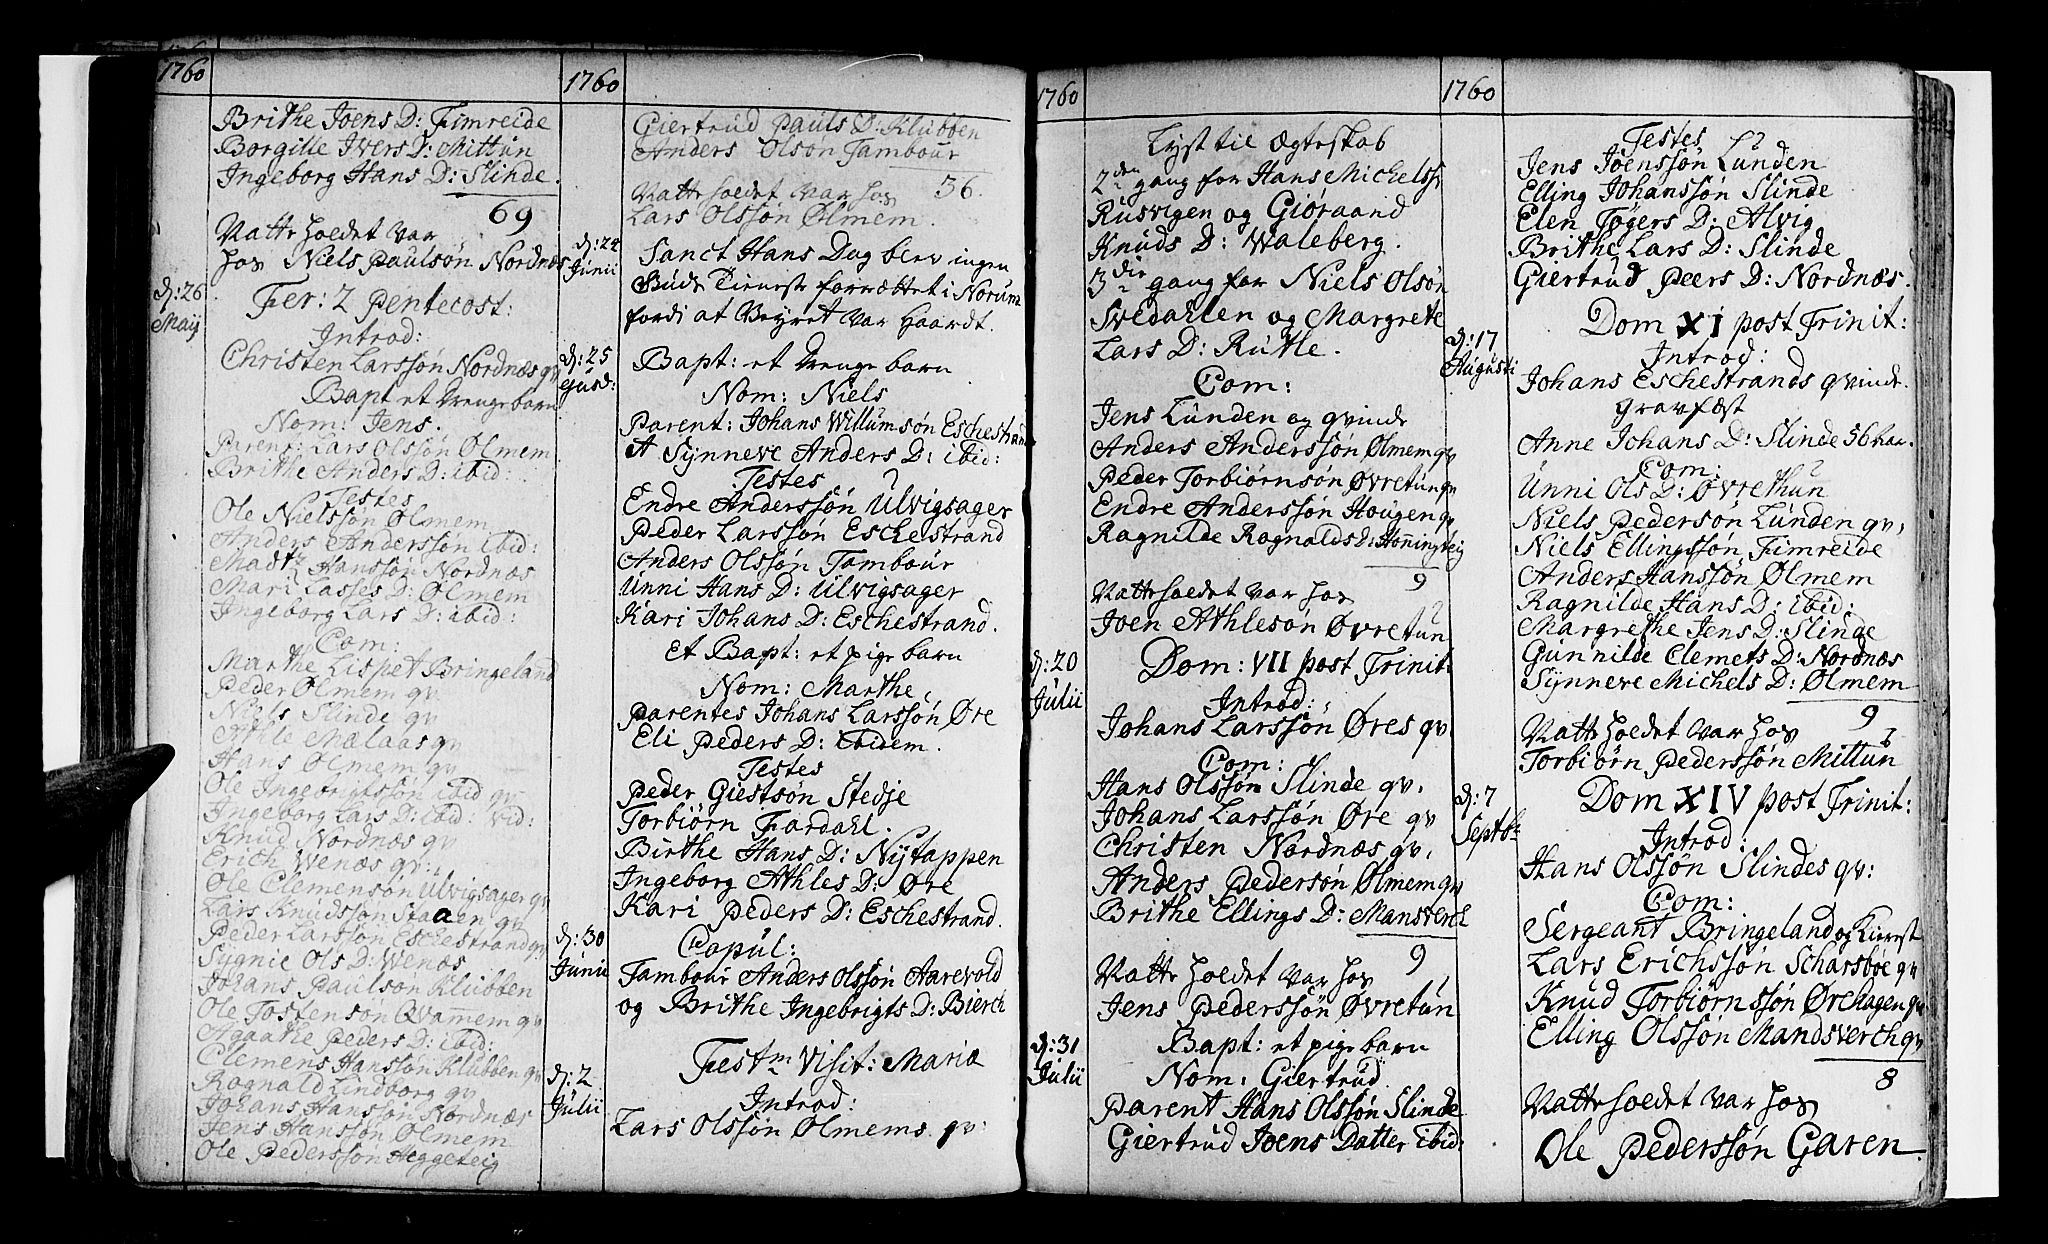 1760
Brithe Joens D: Fimreide
Borgille Ivers D: Mittun
Ingeborg Hans D: Slinde.
69
Natteholdet var
hos Niels Paulsøn Nordnæs
d: 26
May
Fer: 2 Pentecost:
Introd:
Christen Larssøn Nordnæs qv
Bapt et drenge barn
Nom: Jens.
Parent: Lars Olssøn Ølmem
Brithe Anders D: ibid:
Testes
Ole Nielssøn Ølmem
Anders Anderssøn ibid:
Hanssøn Nordnæs
Mari Lasses D: Ølmem
Ingeborg Lars D: ibid:
Com:
Marthe Lispet Bringeland
Peder Ølmem qv
Niels Slinde qv
Athle Mælaas qv
Hans Ølmem qv
Ole Ingebrigtsøn ibid qv
Ingeborg Lars D: ibid: vid:
Knud Nordnæs qv
Erich Wenæs qv:
Ole Clemensøn Ulvigsager qv
Lars Knudssøn Staaen qv
Peder Larssøn Eschestrand qv
Sygnie Ols D: Wenæs
Johans Paulsøn Klubben
Ole Tostensøn Qvamem qv
Agathe Peders D: ibid:
Clemens Hanssøn Klubben qv
Ragnald Lindborg qv
Johans Hanssøn Nordnæs
Jens Hanssøn Ølmem
Ole Pederssøn Heggeteig
1760
Giertrud Pauls D: Klubben
Anders Olsøn Tambour
36.
Natteholdet var hos
Lars Olssøn Ølmem.
d: 24
Junii
Sanct Hans Dag blev ingen
Guds Tieneste forrættet i Norum
fordi at Veyret var haardt.
d: 25
ejusd:
Bapt: et drenge barn
Nom: Niels
Parent: Johans Willumsøn Eschestrand
et Synneve Anders D: ibid:
Testes
Endre Anderssøn Ulvigsager
Peder Larssøn Eschestrand
Anders Olssøn Tambour
Unni Hans D: Ulvigsager
Kari Johans D: Eschestrand.
Et Bapt: et pige barn
Nom: Marthe,
Parentes Johans Larssøn Øre
Eli Peders D: ibidem.
Testes
Peder Giestsøn Stedje
Torbiørn Fardahl.
Birthe Hans D: Nytappen
Ingeborg Athles D: Øre
Kari Peders D: Eschestrand.
d: 30
Junii
Copul:
Tambour Anders Olssøn Aarevold
og Brithe Ingebrigts D: Bierch
d: 2
Julii
Festm Visit: Mariæ
Introd:
Lars Olssøn Ølmems qv:
1760
Lyst til Ægteskab
2den gang for Hans Michelss:
Rusvigen og Giøraand
Knuds D: Waleberg.
3die gang for Niels Olsøn
Svedahlen og Margrete
Lars D: Rutle.
Com:
Jens Lunden og qvinde
Anders Anderssøn Ølmem qv
Peder Torbiørnsøn Øvretun qv
Endre Anderssøn Hougen qv
Ragnilde Ragnalds D: Honningteig
9
Natteholdet var hos
Joen Athlesøn Øvretun
d: 20
Julii
Dom: VII post Trinit:
Introd:
Johans Larssøn Øres qv.
Com:
Hans Olssøn Slinde qv.
Johans Larssøn Øre qv
Christen Nordnæs qv.
Anders Pedersøn Ølmem qv
Brithe Ellings D: Mansverch
9
Natteholdet var hos
Jens Pederssøn Øvretun
d: 31
Julii
Bapt: et pige barn
Nom: Giertrud
Parent Hans Olssøn Slinde
Giertrud Joens Datter ibid:
1760
Testes
Jens Joenssøn Lunden
Elling Johanssøn Slinde
Elen Tøgers D: Alvig
Brithe Lars D: Slinde
Giertrud Peers D: Nordnæs.
d: 17
Augusti
Dom XI post Trinit:
Introd:
Johans Eschestrands qvinde.
Gravfæst
Anne Johans D: Slinde 56
Com:
Unni Ols D: Øvrethun
Niels Pedersøn Lunden qv.
Niels Ellingssøn Fimreide
Anders Hanssøn Ølmem
Ragnilde Hans D: ibid:
Margrethe Jens D: Slinde
Gunnilde Clemets D: Nordnæs
Synneve Michels D: Ølmem
9
Natteholdet var hos
Torbiørn Pederssøn Mittun
d: 7
Septbr
Dom XIV post Trinit:
Introd:
Hans Olssøn Slindes qv:
Com:
Sergeant Bringeland og Kierest
Lars Erichssøn Scharsboe qv
Knud Torbiørnssøn Ørehagen qv
Elling Olssøn Mandsverch qv
8
Natteholdet var hos
Ole Pederssøn Garen